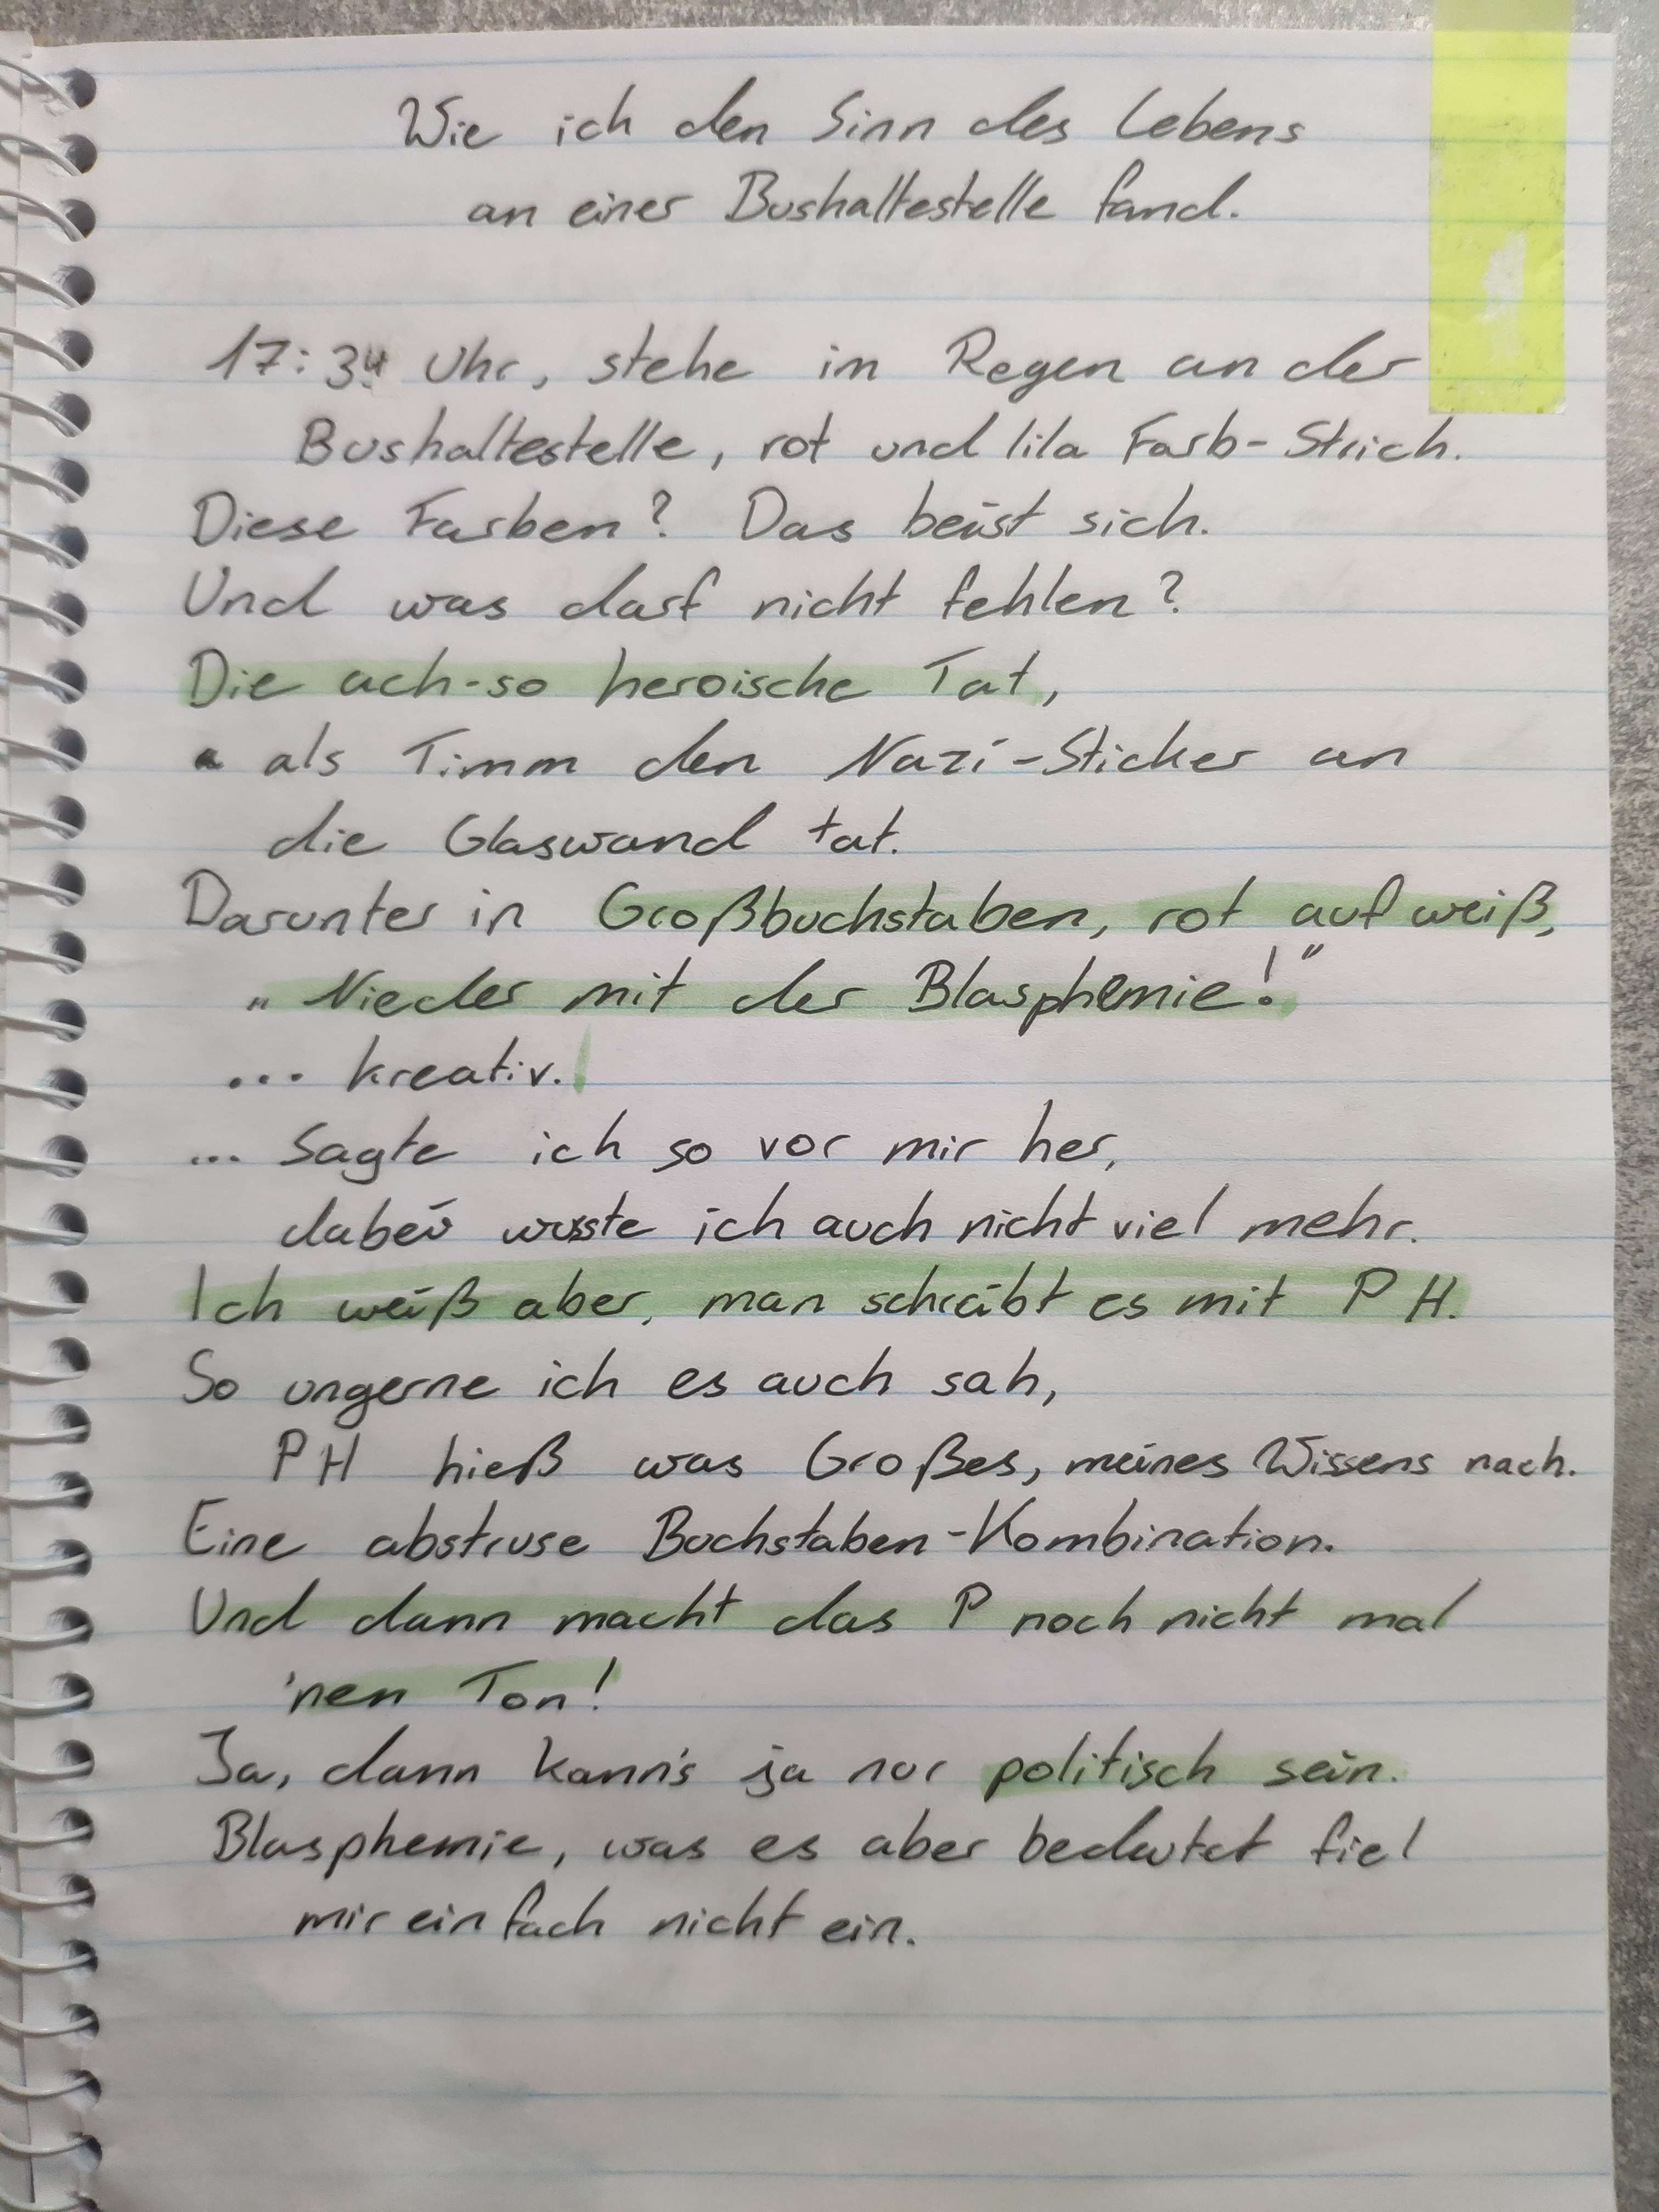 Wie ich den Sinn des Lebens
an einer Bushaltestelle fand.
17:34 Uhr, stehe im Regen an der
Bushaltestelle, rot und lila Farb-Strich.
Diese Farben? Das beist sich.
Und was darf nicht fehlen?
Die ach-so heroische Tat,
als Timm den Nazi-Sticker an
die Glaswand tat.
Darunter in Großbuchstaben, rot auf weiß,
„Nieder mit der Blasphemie!"
... kreativ.
... Sagte ich so vor mir her,
dabei wusste ich auch nicht viel mehr.
Ich weiß aber, man schreibt es mit PH.
So ungerne ich es auch sah,
PH hieß was Großes, meines Wissens nach.
Eine abstruse Buchstaben-Kombination.
Und dann macht das P noch nicht mal
'nen Ton!
Ja, dann kann's ja nur politisch sein.
Blasphemie, was es aber bedeutet fiel
mir einfach nicht ein.